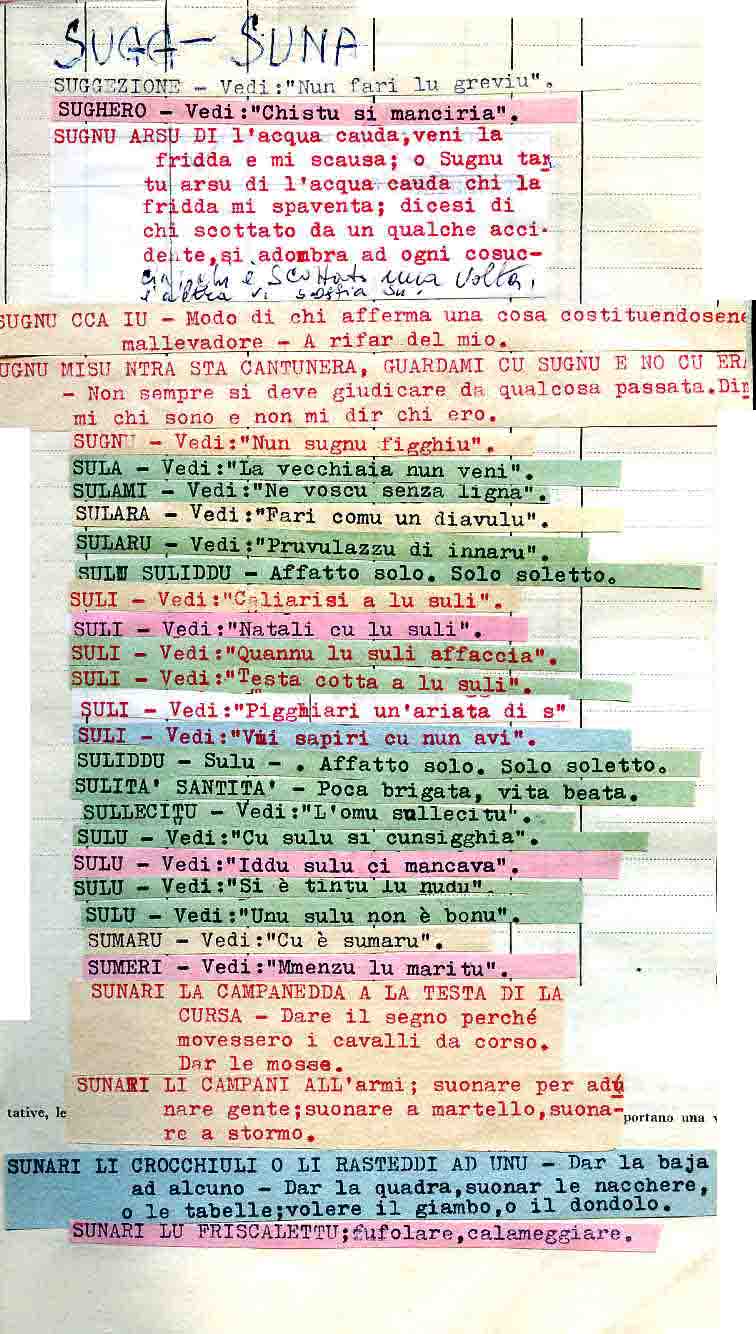 SUGG - SUNA
SUGGEZIONE - Vedi:"Nun fari lu greviu".
SUGHERO - Vedi:"Chistu si manciria".
SUGNU ARSU DI l'acqua cauda,veni la
fridda e mi scausa; o Sugnu tan
tu arsu di l'acqua cauda chi la
fridda mi spaventa; dicesi di
chi scottato da un qualche acci-
dente,si adombra ad ogni cosuc-
è scottato una volta,
l'altra vi soffia su.
SUGNU CCA IU - Modo di chi afferma una cosa costituendosene
mallevadore - A rifar del mio.
UGNU MISU NTRA STA CANTUNERA, GUARDAMI CU SUGNU E NO CU ERA
- Non sempre si deve giudicare da qualcosa passata.Dim
mi chi sono e non mi dir chi ero.
SUGNU - Vedi:"Nun sugnu figghiu".
SULA - Vedi:"La vecchiaia nun veni".
SULAMI - Vedi:"Ne voscu senza ligna".
SULARA - Vedi:"Fari comu un diavulu".
SULARU - Vedi:"Pruvulazzu di innaru".
SULU SULIDDU - Affatto solo. Solo soletto.
SULI - Vedi:"Caliarisi a lu suli".
SULI - Vedi:"Natali cu lu suli".
SULI - Vedi:"Quannu lu suli affaccia".
SULI - Vedi:"Testa cotta a lu suli".
SULI - Vedi:"Pigghiari un'ariata di s"
SULI - Vedi:"Vui sapiri cu nun avi".
SULIDDU - Sulu - . Affatto solo. Solo soletto.
SULITA' SANTITA' - Poca brigata, vita beata.
SULLECITU - Vedi:"L'omu sullecitu".
SULU - Vedi:"Cu sulu si cunsigghia".
SULU - Vedi:"Iddu sulu ci mancava".
SULU - Vedi:"Si è tintu lu nudu".
SULU - Vedi:"Unu sulu non è bonu".
SUMARU - Vedi:"Cu è sumaru".
SUMERI - Vedi:"Mmenzu lu maritu".
SUNARI LA CAMPANEDDA A LA TESTA DI LA
CURSA - Dare il segno perché
movessero i cavalli da corso.
Dar le mosse.
SUNARI LI CAMPANI ALL'armi; suonare per adu
nare gente;suonare a martello,suona-
re a stormo.
tative, le
portano una v
SUNARI LI CROCCHIULI O LI RASTEDDI AD UNU - Dar la baja
ad alcuno - Dar la quadra,suonar le nacchere,
o le tabelle;volere il giambo,o il dondolo.
SUNARI LU FRISCALETTU;fufolare,calameggiare.